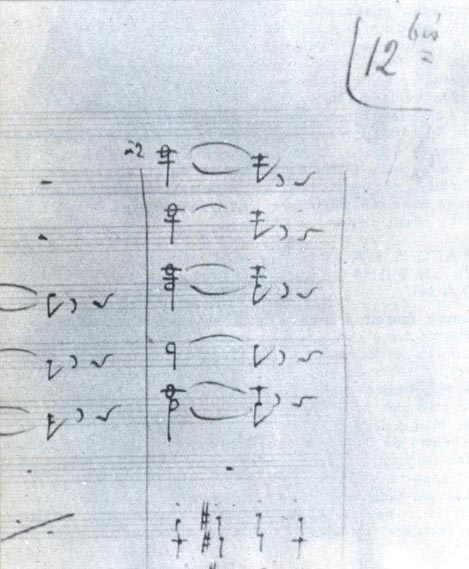 12 bis
a2